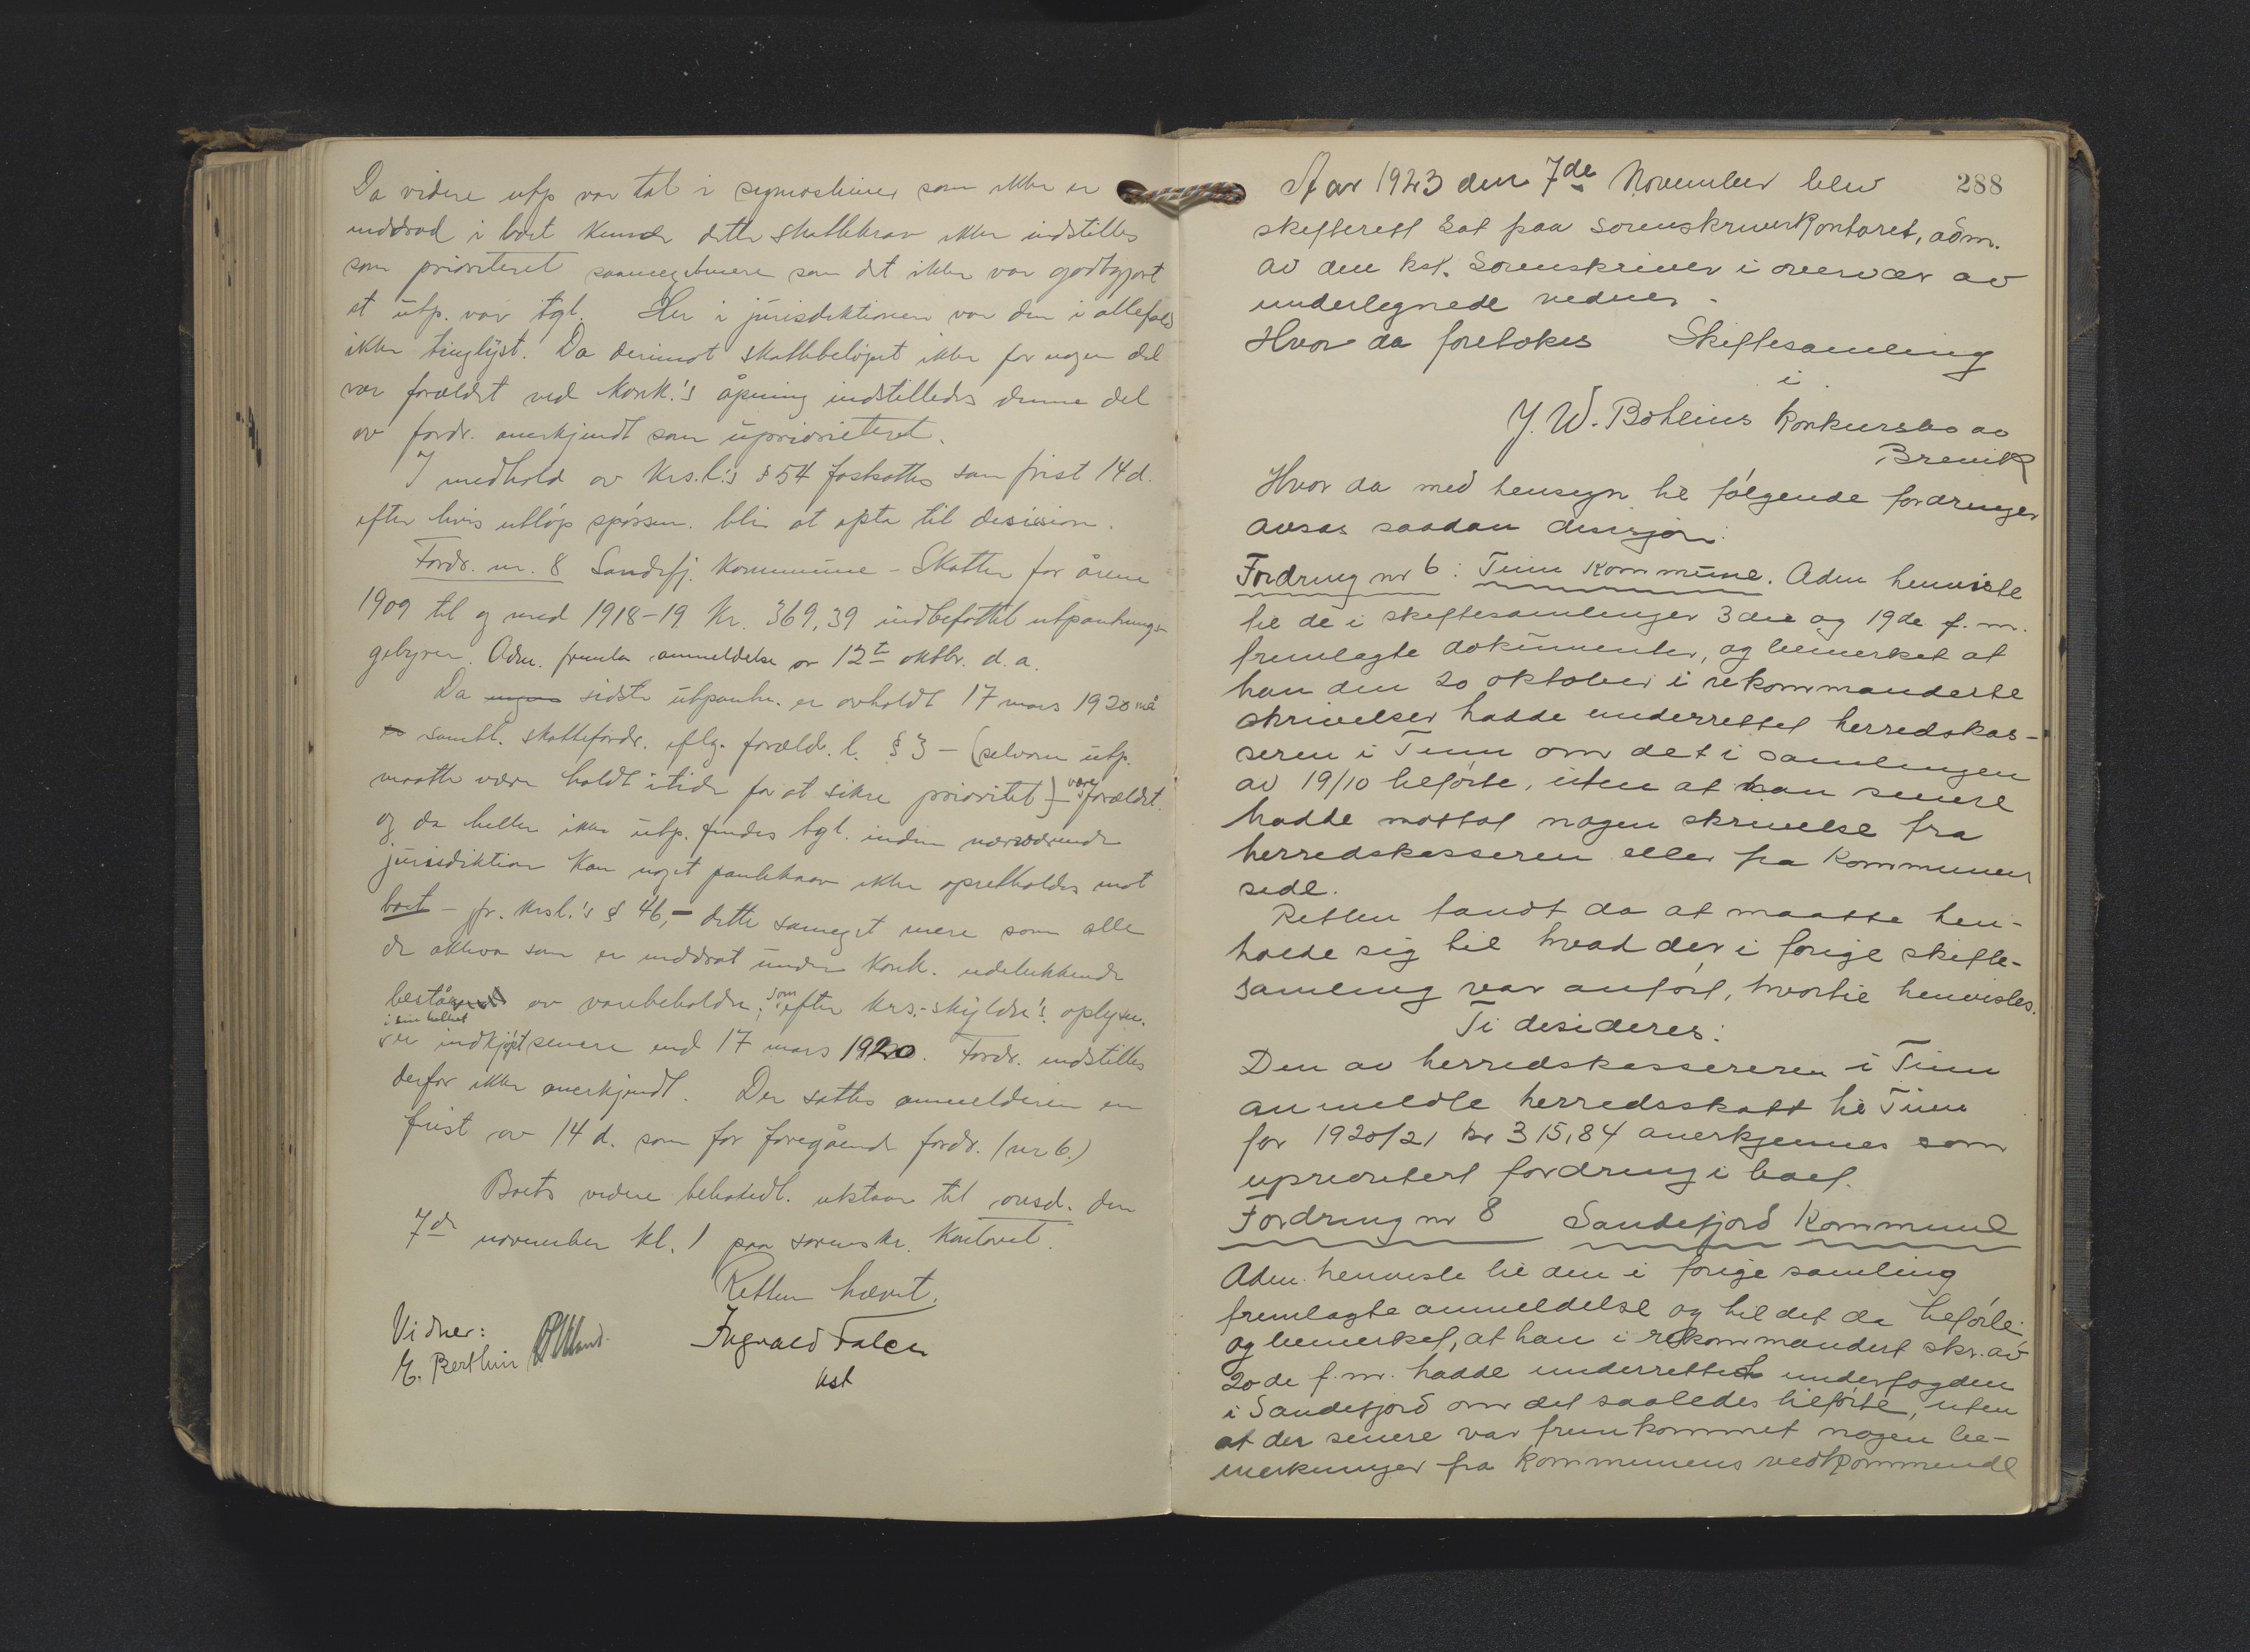 Da videre utp var tat i symaskiner som ikke er
inddrad i boet kunde dette skattekrav ikke indstilles
som prioriteret saameget mere som det ikke var godtgjort
at utp. var tgl. Her i jurisdiktionen var den i allefald
ikke tinglyst. Da derimot skattebeløpet ikke for nogen del
var forældet ved konk.'s åpning indstilledes denne del
av fordr. anerkjendt som uprioriteret.
I medhold av krs.l.'s § 54 fastsattes som frist 14 d.
efter hvis utløp spørsm. blir at opta til desision.
Fordr. nr. 8 Sandefj. kommune - Skatter for årene
1909 til og med 1918-19 kr. 369,39 indbefattet utpantnings-
gebyrer. Adm. fremla anmeldelse av 12te oktbr. d. a.
Da sidste utpantn. er avholdt 17 mars 1920 må
samtl. skattefordr. iflg. foræld. l. § 3 - (selvom utp.
maatte være holdt i tide for at sikre prioritet) - være forældet.
og da heller ikke utp. findes tgl. inden nærværende
jurisdiktion kan noget pantekrav ikke opretholdes mot
boet - jfr. krsl.'s § 46, - dette sameget mere som alle
de aktiva som er inddrat under konk. udelukkende
består av varebeholdn.; som efter krs.-skyldn's oplysn.
i sin helhet
er indkjøpt senere end 17 mars 1920. Fordr. indstilles
derfor ikke anerkjendt. Der sattes anmelderen en
frist av 14 d. som for foregående fordr. (nr 6.)
Boets videre behandl. utstaar til onsd. den
7de november kl. 1 paa sorenskr. kontoret.
Retten hævet.
Vidner:
E. Berthin
Ingvald Falch
kst
288
Aar 1923 den 7de November blev
skifterett sat paa sorenskriverkontoret, adm.
av den kst. sorenskriver i overvær av
undertegnede vidner.
Hvor da foretokes Skiftesamling
i
J. W. Bohlins konkursbo av
Brevik
Hvor da med hensyn til følgende fordringer
avsas saadan desisjon:
Fordring nr 6: Tinn kommune. Adm henviste
til de i skiftesamlinger 3die og 19de f. m.
fremlagte dokumenter, og bemerket at
han den 20 oktober i rekommanderte
skrivelser hadde underrettet herredskas-
seren i Tinn om det i samlingen
av 19/10 tilførte, uten at han senere
hadde mottat nogen skrivelse fra
herredskasseren eller fra kommunens
side.
Retten fandt da at maatte hen-
holde sig til hvad der i forige skifte-
samling var anført, hvortil henvistes.
Ti desideres:
Den av herredskassereren i Tinn
anmeldte herredsskatt til Tinn
for 1920/21 kr 315,84 anerkjennes som
uprioritert fordring i boet.
Fordring nr 8 Sandefjord kommune
Adm. henviste til den i forige samling
fremlagte anmeldelse og til det da tilførte
og bemerket, at han i rekommandert skr. av
20de f. m. hadde underrettet underfogden
i Sandefjord om det saaledes tilførte, uten
at der senere var fremkommet nogen be-
merkninger fra kommunens vedkommende